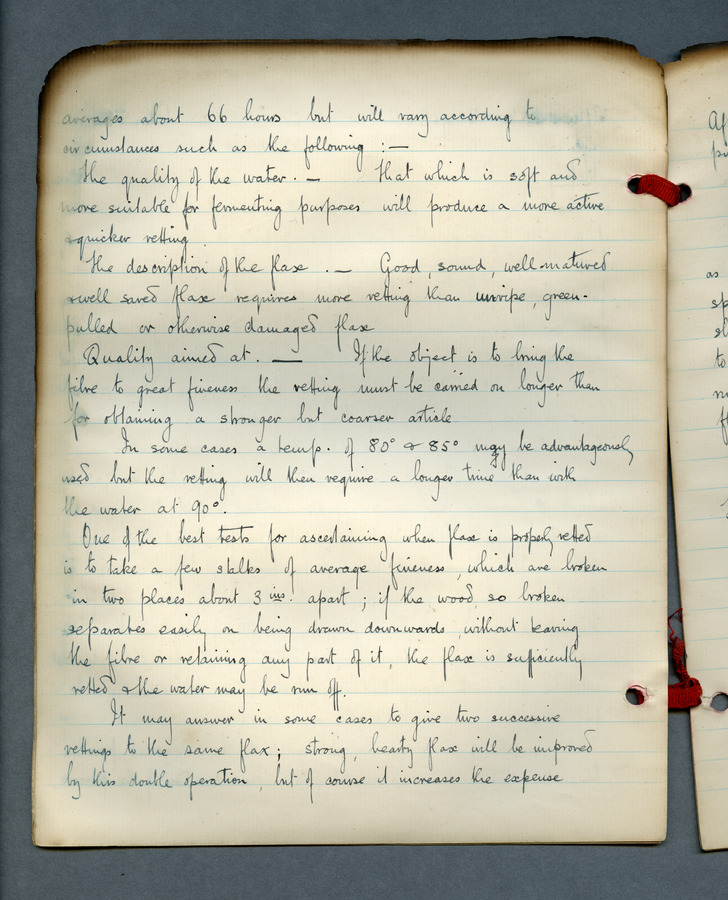 averages about 66 hours but will vary according to
circumstances such as the following :—
The quality of the water. — That which is soft and
more suitable for fermenting purposes will produce a more active
& quicker retting.
The description of the flax. — Good, sound, well-matured
& well saved flax requires more retting than unripe, green-
pulled or otherwise damaged flax
Quality aimed at. — If the object is to bring the
fibre to great fineness the retting must be carried on longer than
for obtaining a stronger but coarser article
In some cases a temp. of 80° & 85° may be advantageously
used but the retting will then require a longer time than with
the water at 90°.
One of the best tests for ascertaining when flax is properly retted
is to take a few stalks of average fineness, which are broken
in two places about 3 ins. apart; if the wood so broken
separates easily on being drawn downwards, without tearing
the fibre or retaining any part of it, the flax is sufficiently
retted & the water may be run off.
It may answer in some cases to give two successive
rettings to the same flax; strong, hearty flax will be improved
by this double operation, but of course it increases the expense
Af
as
sp
to